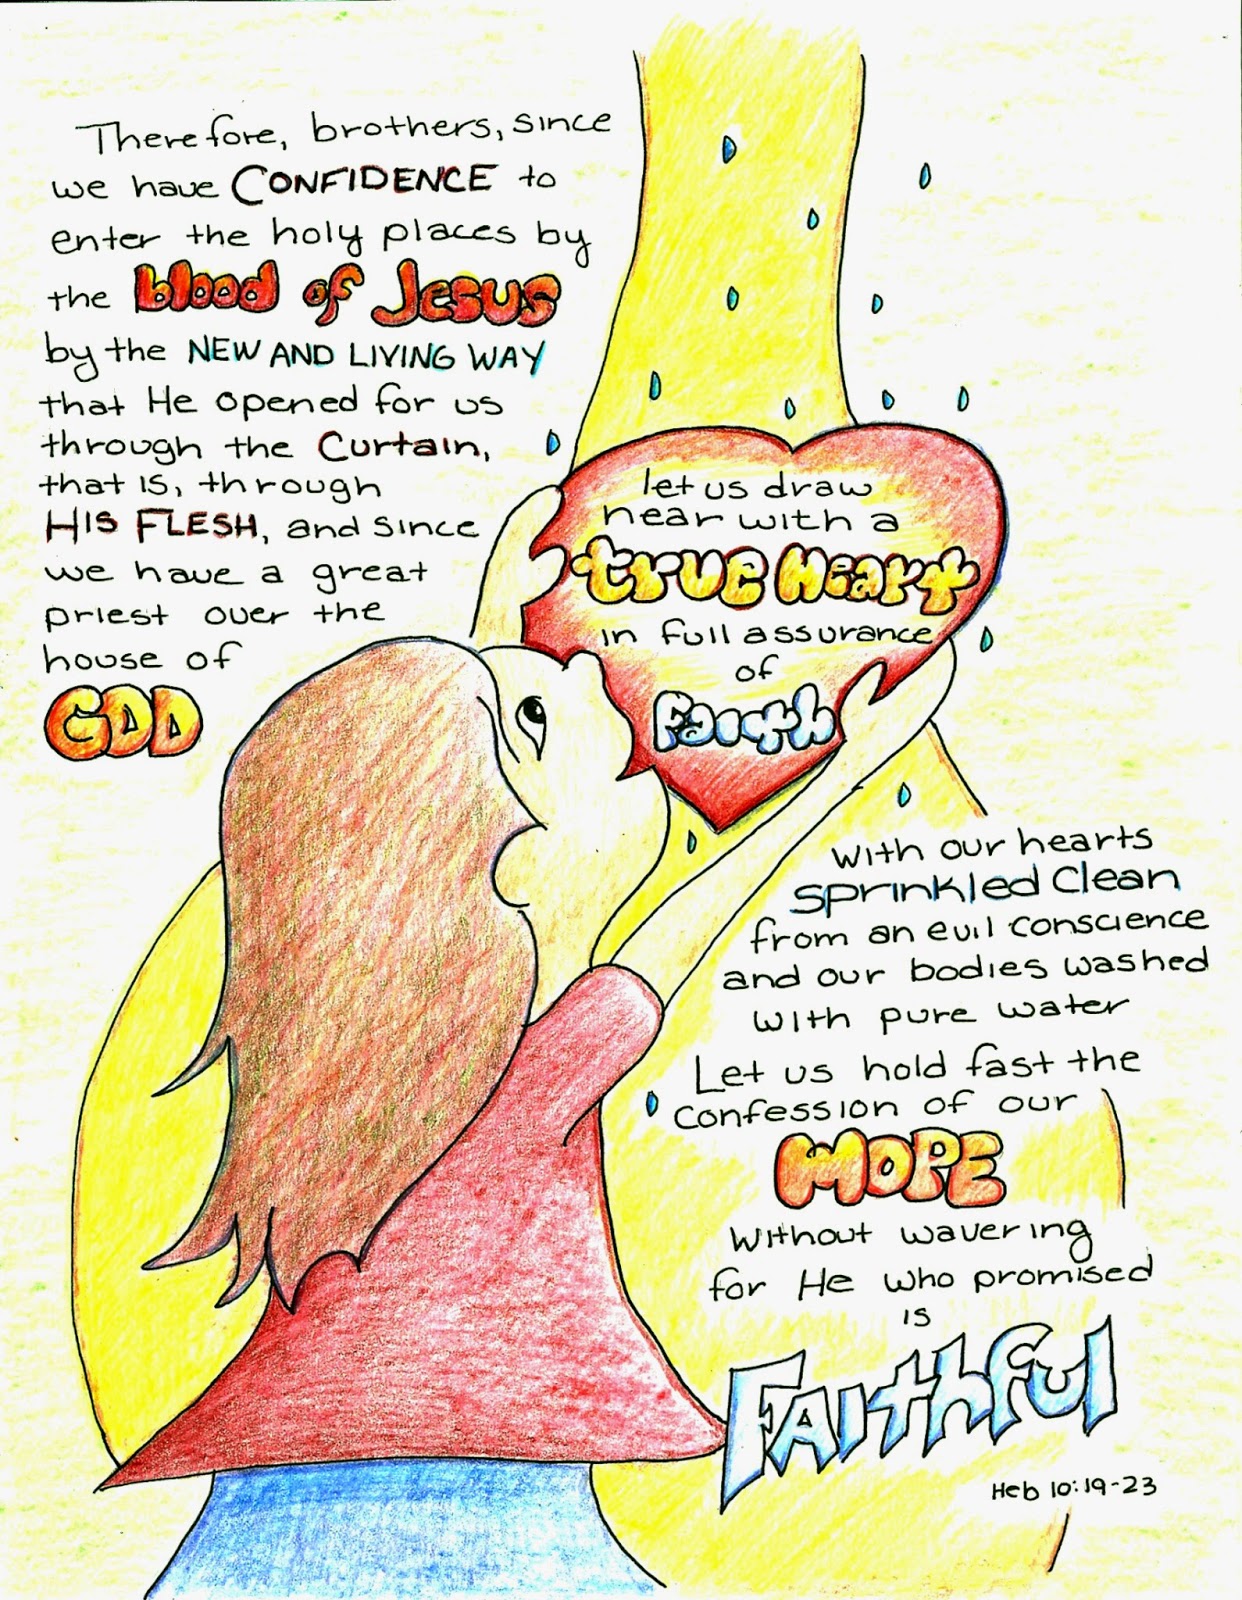 Therefore, brothers, since
we have CONFIDENCE to
enter the holy places by
the blood of Jesus
by the NEW AND LIVING WAY
that He opened for us
through the Curtain,
that is, through
HIS FLESH, and since
we have a great
priest over the
house of
GOD
let us draw
near with a
true Heart
in full assurance
of
Faith
with our hearts
sprinkled clean
from an evil conscience
and our bodies washed
with pure water
Let us hold fast the
confession of our
HOPE
without wavering
for He who promised
is
FAithful
Heb 10:19-23